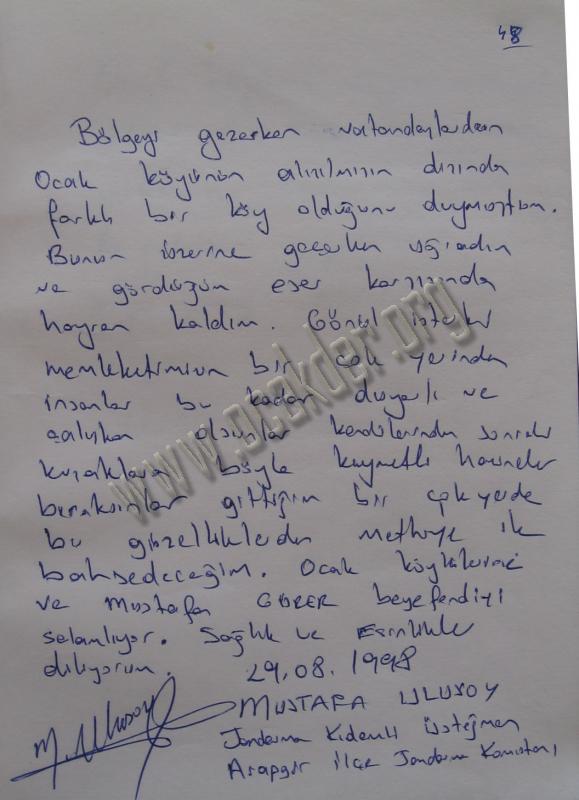 48
Bölgeyi gezerken vatandaşlardan
Ocak köyünün alınılmışın dışında
farklı bir köy olduğunu duymuştum.
Bunun üzerine geçerken uğradım
ve gördüğüm eser karşısında
hayran kaldım. Gönül ister ki
memleketimizin bir çok yerinden
insanlar bu kadar duyarlı ve
çalışkan olsunlar kendilerinden sonraki
kuşaklara böyle kıymetli hazineler
bıraksınlar gittiğim bir çok yerde
bu güzelliklerden methiye ile
bahsedeceğim. Ocak köylülerini
ve Mustafa GÜRER beyefendiyi
selamlıyor. Sağlık ve Esenlikler
diliyorum.
29.08.1998
M. Ulusoy
MUSTAFA ULUSOY
Jandarma Kıdemli Üsteğmen
Arapgir İlçe Jandarma Komutanı
www.ocakder.org